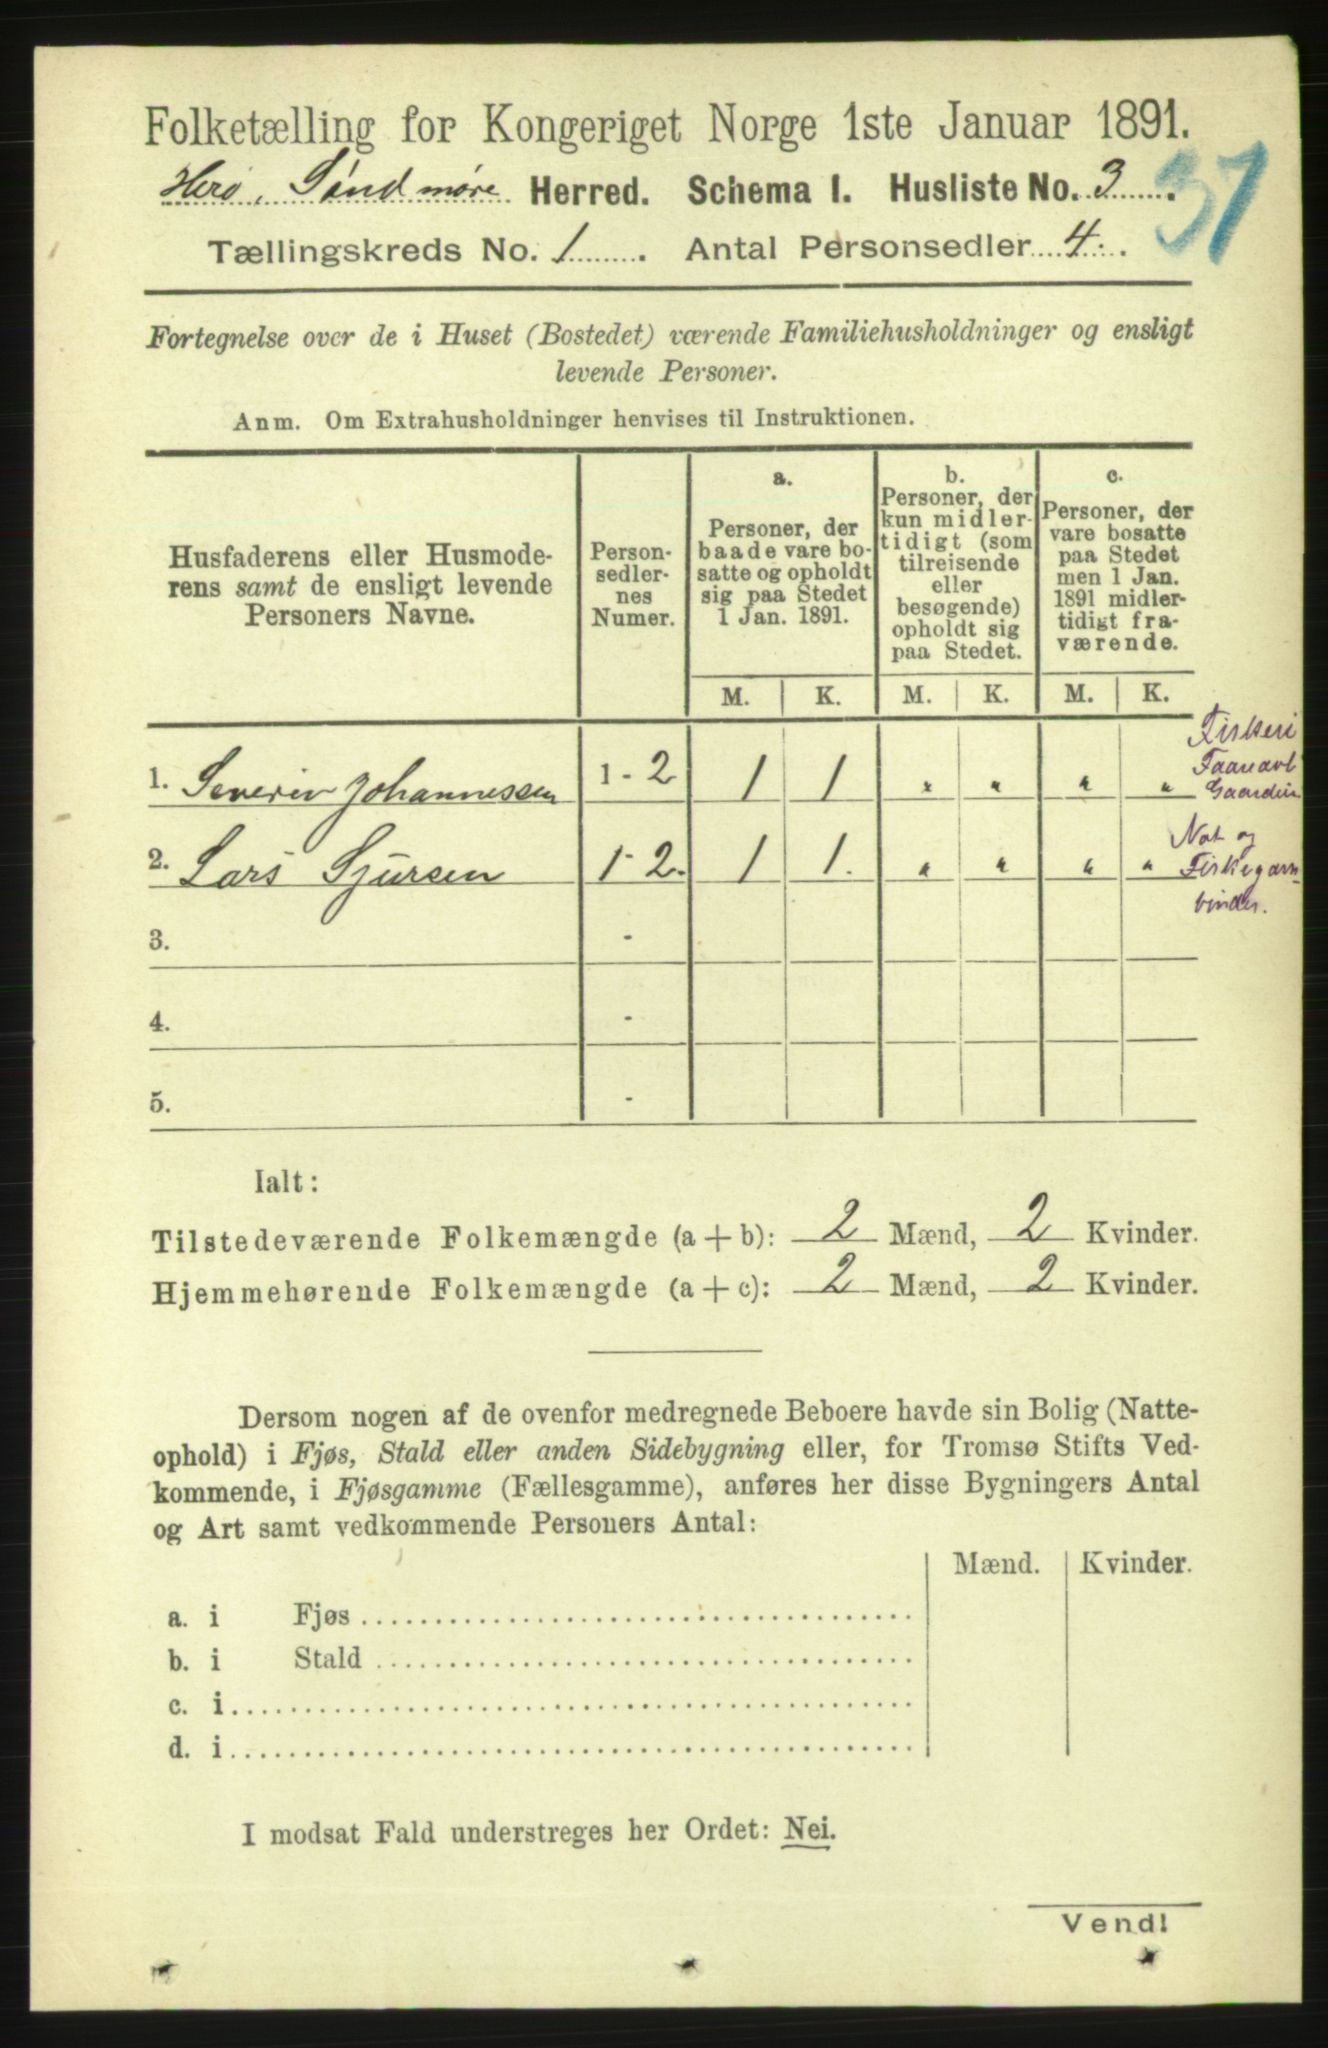 Folketælling for Kongeriget Norge 1ste Januar 1891.
Herø, Søndmøre Herred. Schema I. Husliste No. 3.
37
Tællingskreds No. 1. Antal Personsedler 4.
Fortegnelse over de i Huset (Bostedet) værende Familiehusholdninger og ensligt
levende Personer.
Anm. Om Extrahusholdninger henvises til Instruktionen.
Husfaderens eller Husmode-
rens samt de ensligt levende
Personers Navne.
Person-
sedler-
nes
Numer.
a.
Personer, der
baade vare bo-
satte og opholdt
sig paa Stedet
1 Jan. 1891.
b.
Personer, der
kun midler-
tidigt (som
tilreisende
eller
besøgende)
opholdt sig
paa Stedet.
c.
Personer, der
vare bosatte
paa Stedet
men 1 Jan.
1891 midler-
tidigt fra-
værende.
M. K. M. K. M. K.
Fiskeri
1. Severin Johannessen 1 - 2 1 1 " " " "
Not og
2. Lars Sjursen 1 - 2. 1 1. " " " " Fiskegarn-
binder.
3. -
4. -
5. -
Ialt:
Tilstedeværende Folkemængde (a + b): 2 Mænd, 2 Kvinder.
Hjemmehørende Folkemængde (a + c): 2 Mænd, 2 Kvinder.
Dersom nogen af de ovenfor medregnede Beboere havde sin Bolig (Natte-
ophold) i Fjøs, Stald eller anden Sidebygning eller, for Tromsø Stifts Ved-
kommende, i Fjøsgamme (Fællesgamme), anføres her disse Bygningers Antal
og Art samt vedkommende Personers Antal:
Mænd. Kvinder.
a. i Fjøs
b. i Stald
c. i
d. i
I modsat Fald understreges her Ordet: Nei.
Vend!